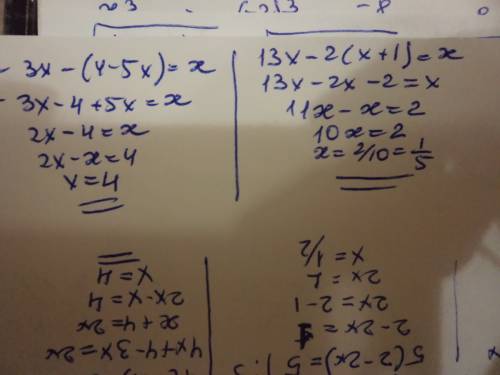 -3x-(4-5x)=x
-3x-4+5x=x
2x-4=x
2x-x=4
x=4
13x-2(x+1)=x
13x-2x-2=x
11x-x=2
10x=2
x=2/10=1/5
5(2-2x)=5 |:5
2-2x=1
2x=2-1
2x=1
x=1/2
4x+4-3x=2x
x+4=2x
2x-x=4
x=4